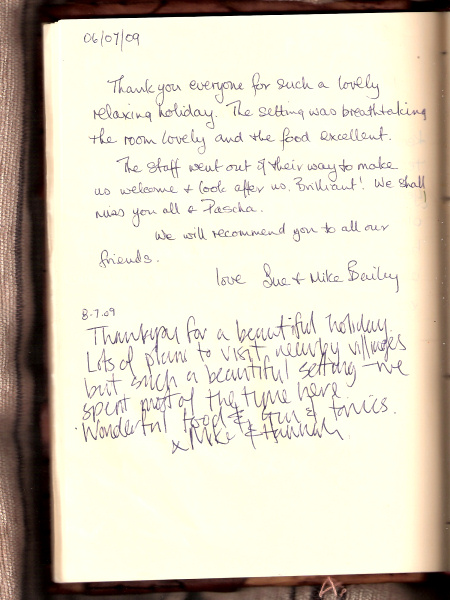 06/07/09
Thank you everyone for such a lovely
relaxing holiday. The setting was breathtaking
the room lovely and the food excellent.
The staff went out of their way to make
us welcome + look after us. Brilliant! We shall
miss you all & Pascha.
We will recommend you to all our
friends.
love Sue + Mike Bailey
8.7.09
Thankyou for a beautiful holiday.
Lots of plans to visit nearby villages
but such a beautiful setting - we
spent most of the time here.
Wonderful food & Gin & tonics.
x Mike & Hannah.